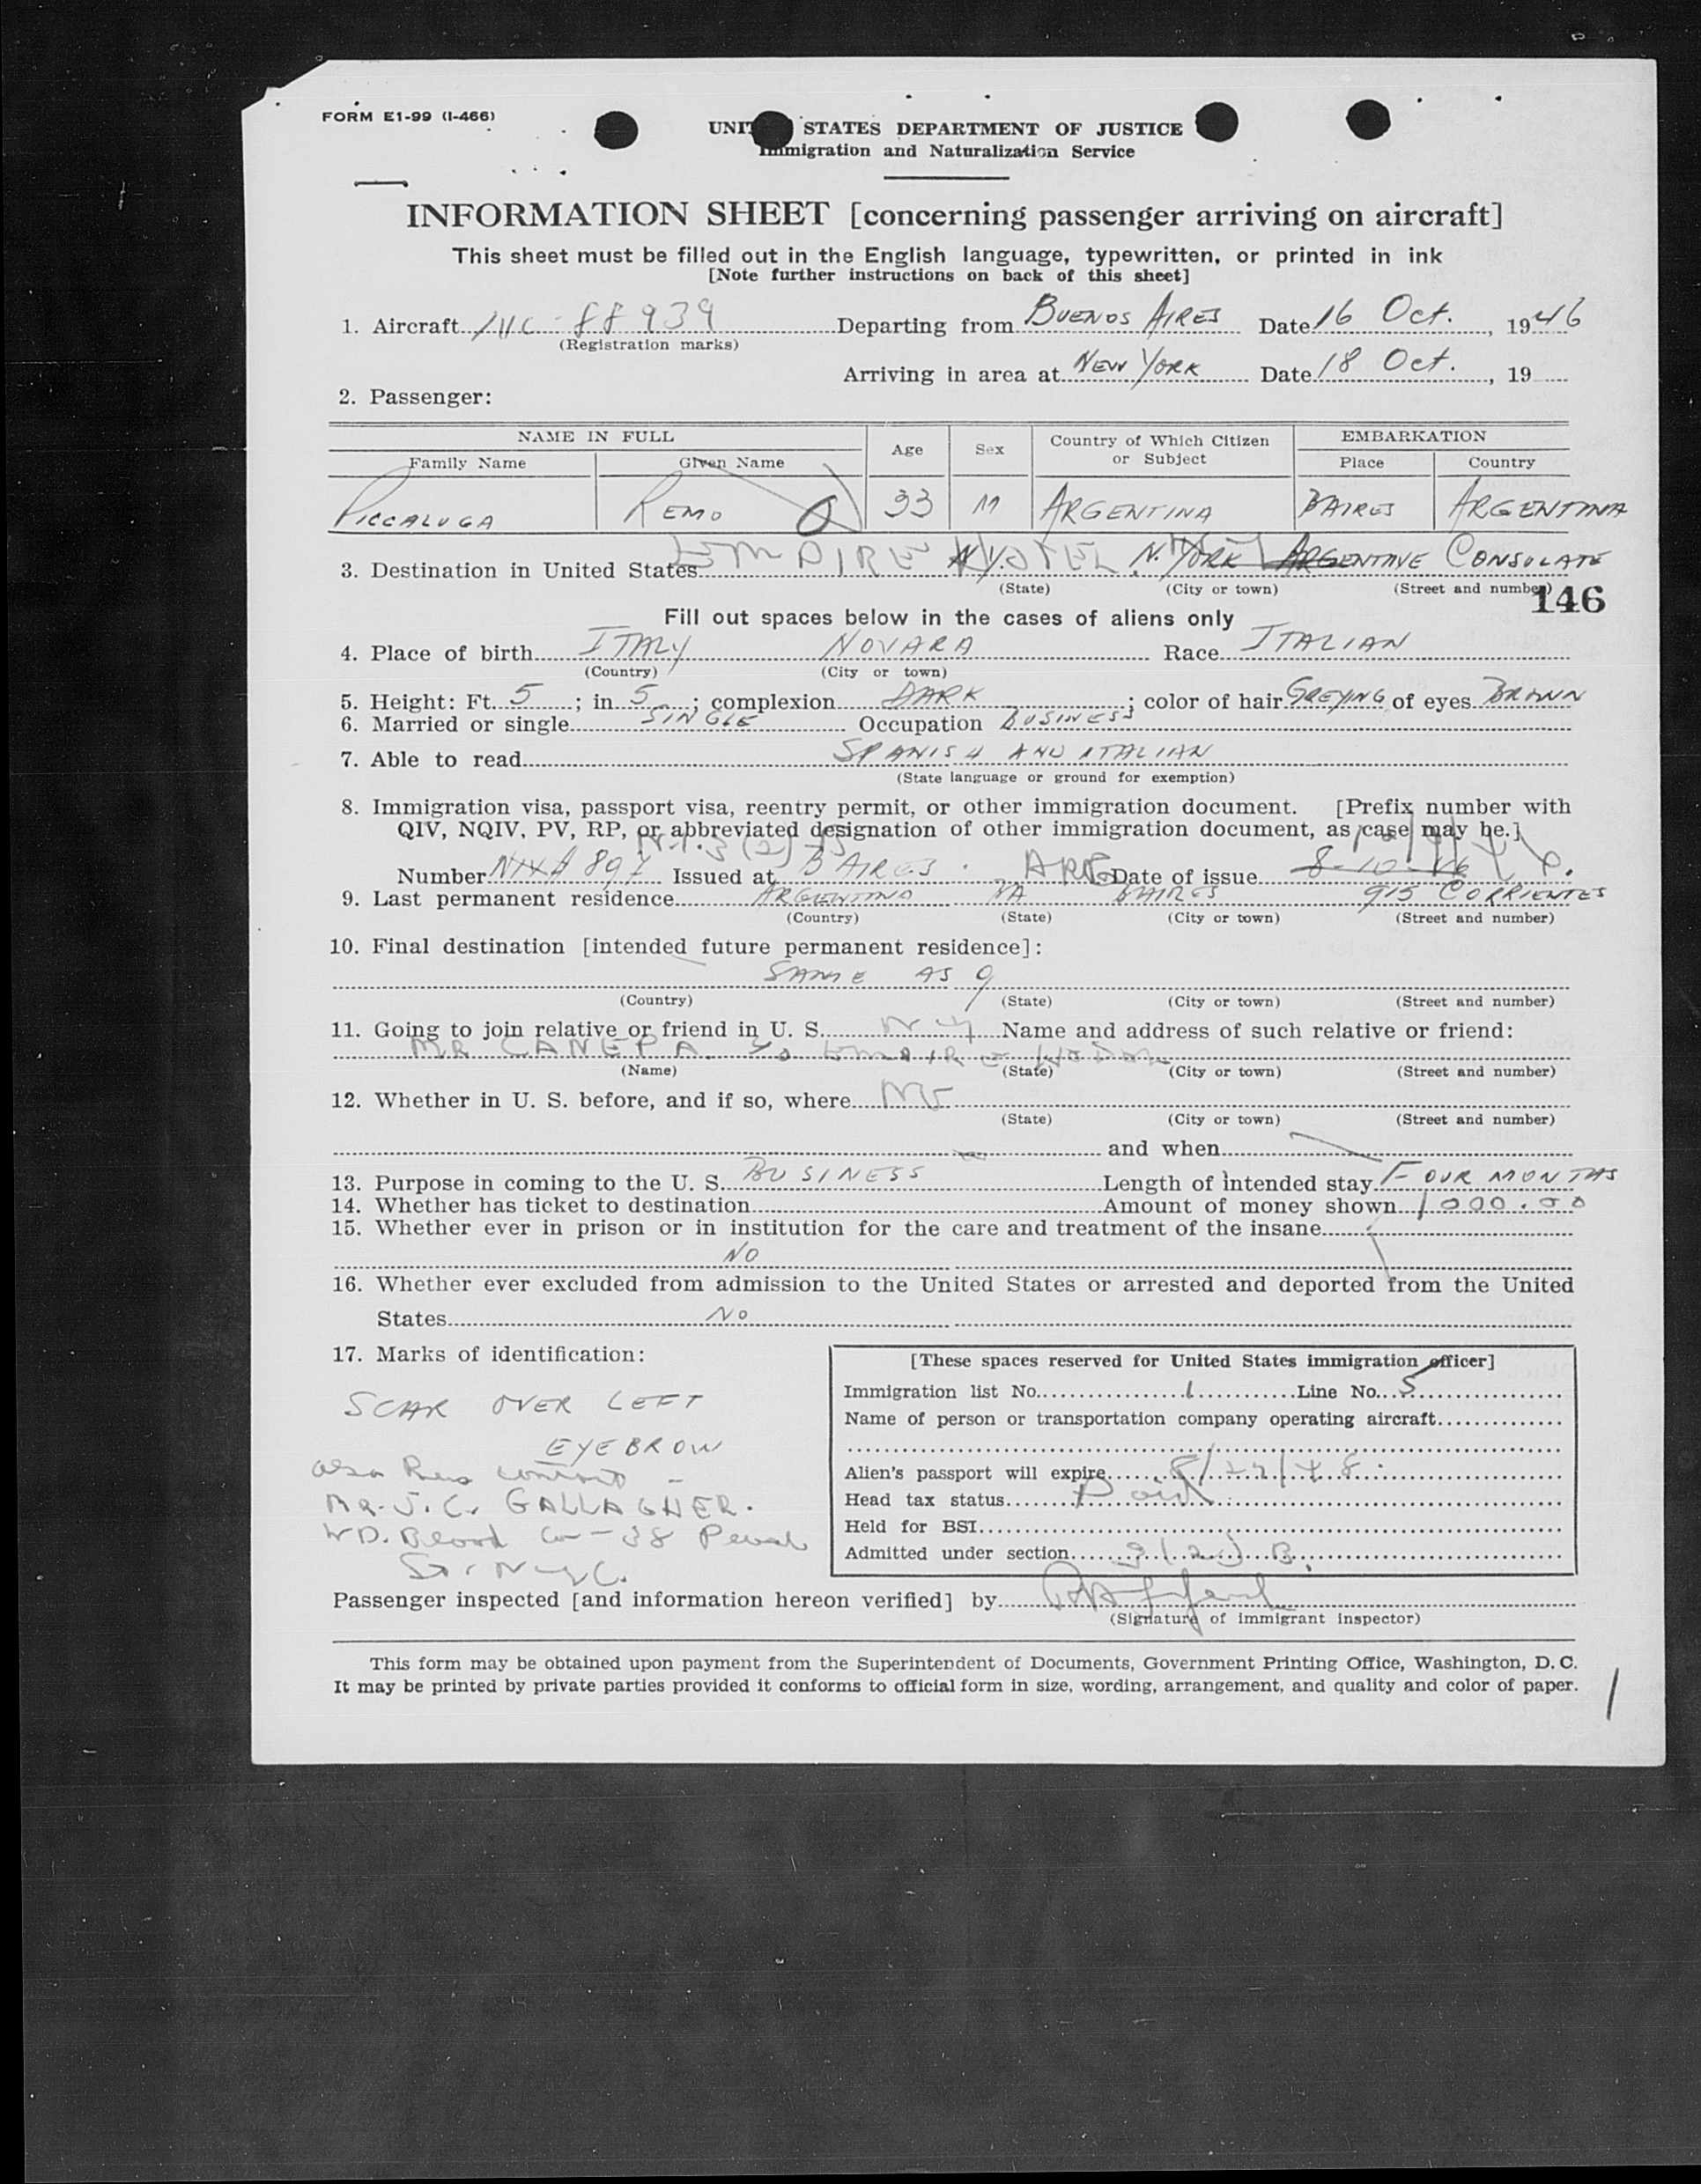 FORM E1-99 (I-466)
UNITED STATES DEPARTMENT OF JUSTICE
Immigration and Naturalization Service
INFORMATION SHEET [concerning passenger arriving on aircraft]
This sheet must be filled out in the English language, typewritten, or printed in ink
[Note further instructions on back of this sheet]
1. Aircraft 88939 Departing from BUENOS AIRES Date 16 Oct., 1946
(Registration marks)
Arriving in area at NEW YORK Date 18 Oct., 19
2. Passenger:
NAME IN FULL Age Sex Country of Which Citizen or Subject EMBARKATION
Family Name Given Name Place Country
PICCALUGA REMO 33 M ARGENTINA BAIRES ARGENTINA
3. Destination in United States EMPIRE HOTEL N.Y. N. YORK ARGENTINE CONSULATE
(State) (City or town) (Street and number)
146
Fill out spaces below in the cases of aliens only
4. Place of birth ITALY NOVARA Race ITALIAN
(Country) (City or town)
5. Height: Ft. 5; in. 5; complexion DARK; color of hair GREYING of eyes BROWN
6. Married or single SINGLE Occupation BUSINESS
7. Able to read SPANISH AND ITALIAN
(State language or ground for exemption)
8. Immigration visa, passport visa, reentry permit, or other immigration document. [Prefix number with
QIV, NQIV, PV, RP, or abbreviated designation of other immigration document, as case may be.]
Number 897 Issued at BAIRES ARG Date of issue 8-10-46
9. Last permanent residence ARGENTINA BA BAIRES 915 CORRIENTES
(Country) (State) (City or town) (Street and number)
10. Final destination [intended future permanent residence]:
SAME AS 9
(Country) (State) (City or town) (Street and number)
11. Going to join relative or friend in U. S. Name and address of such relative or friend:
MR CANEPA c/o EMPIRE HOTEL
(Name) (State) (City or town) (Street and number)
12. Whether in U. S. before, and if so, where NO
(State) (City or town) (Street and number)
and when
13. Purpose in coming to the U. S. BUSINESS Length of intended stay FOUR MONTHS
14. Whether has ticket to destination Amount of money shown 1000.00
15. Whether ever in prison or in institution for the care and treatment of the insane
NO
16. Whether ever excluded from admission to the United States or arrested and deported from the United
States NO
17. Marks of identification:
SCAR OVER LEFT
EYEBROW
also
MR. J. C. GALLAGHER.
WD. Blood Co - 38 Pearl
St. N.Y.C.
[These spaces reserved for United States immigration officer]
Immigration list No. 1 Line No. 5
Name of person or transportation company operating aircraft
Alien's passport will expire 8/22/48
Head tax status Paid
Held for BSI
Admitted under section 3(2) B.
Passenger inspected [and information hereon verified] by
(Signature of immigrant inspector)
This form may be obtained upon payment from the Superintendent of Documents, Government Printing Office, Washington, D. C.
It may be printed by private parties provided it conforms to official form in size, wording, arrangement, and quality and color of paper.